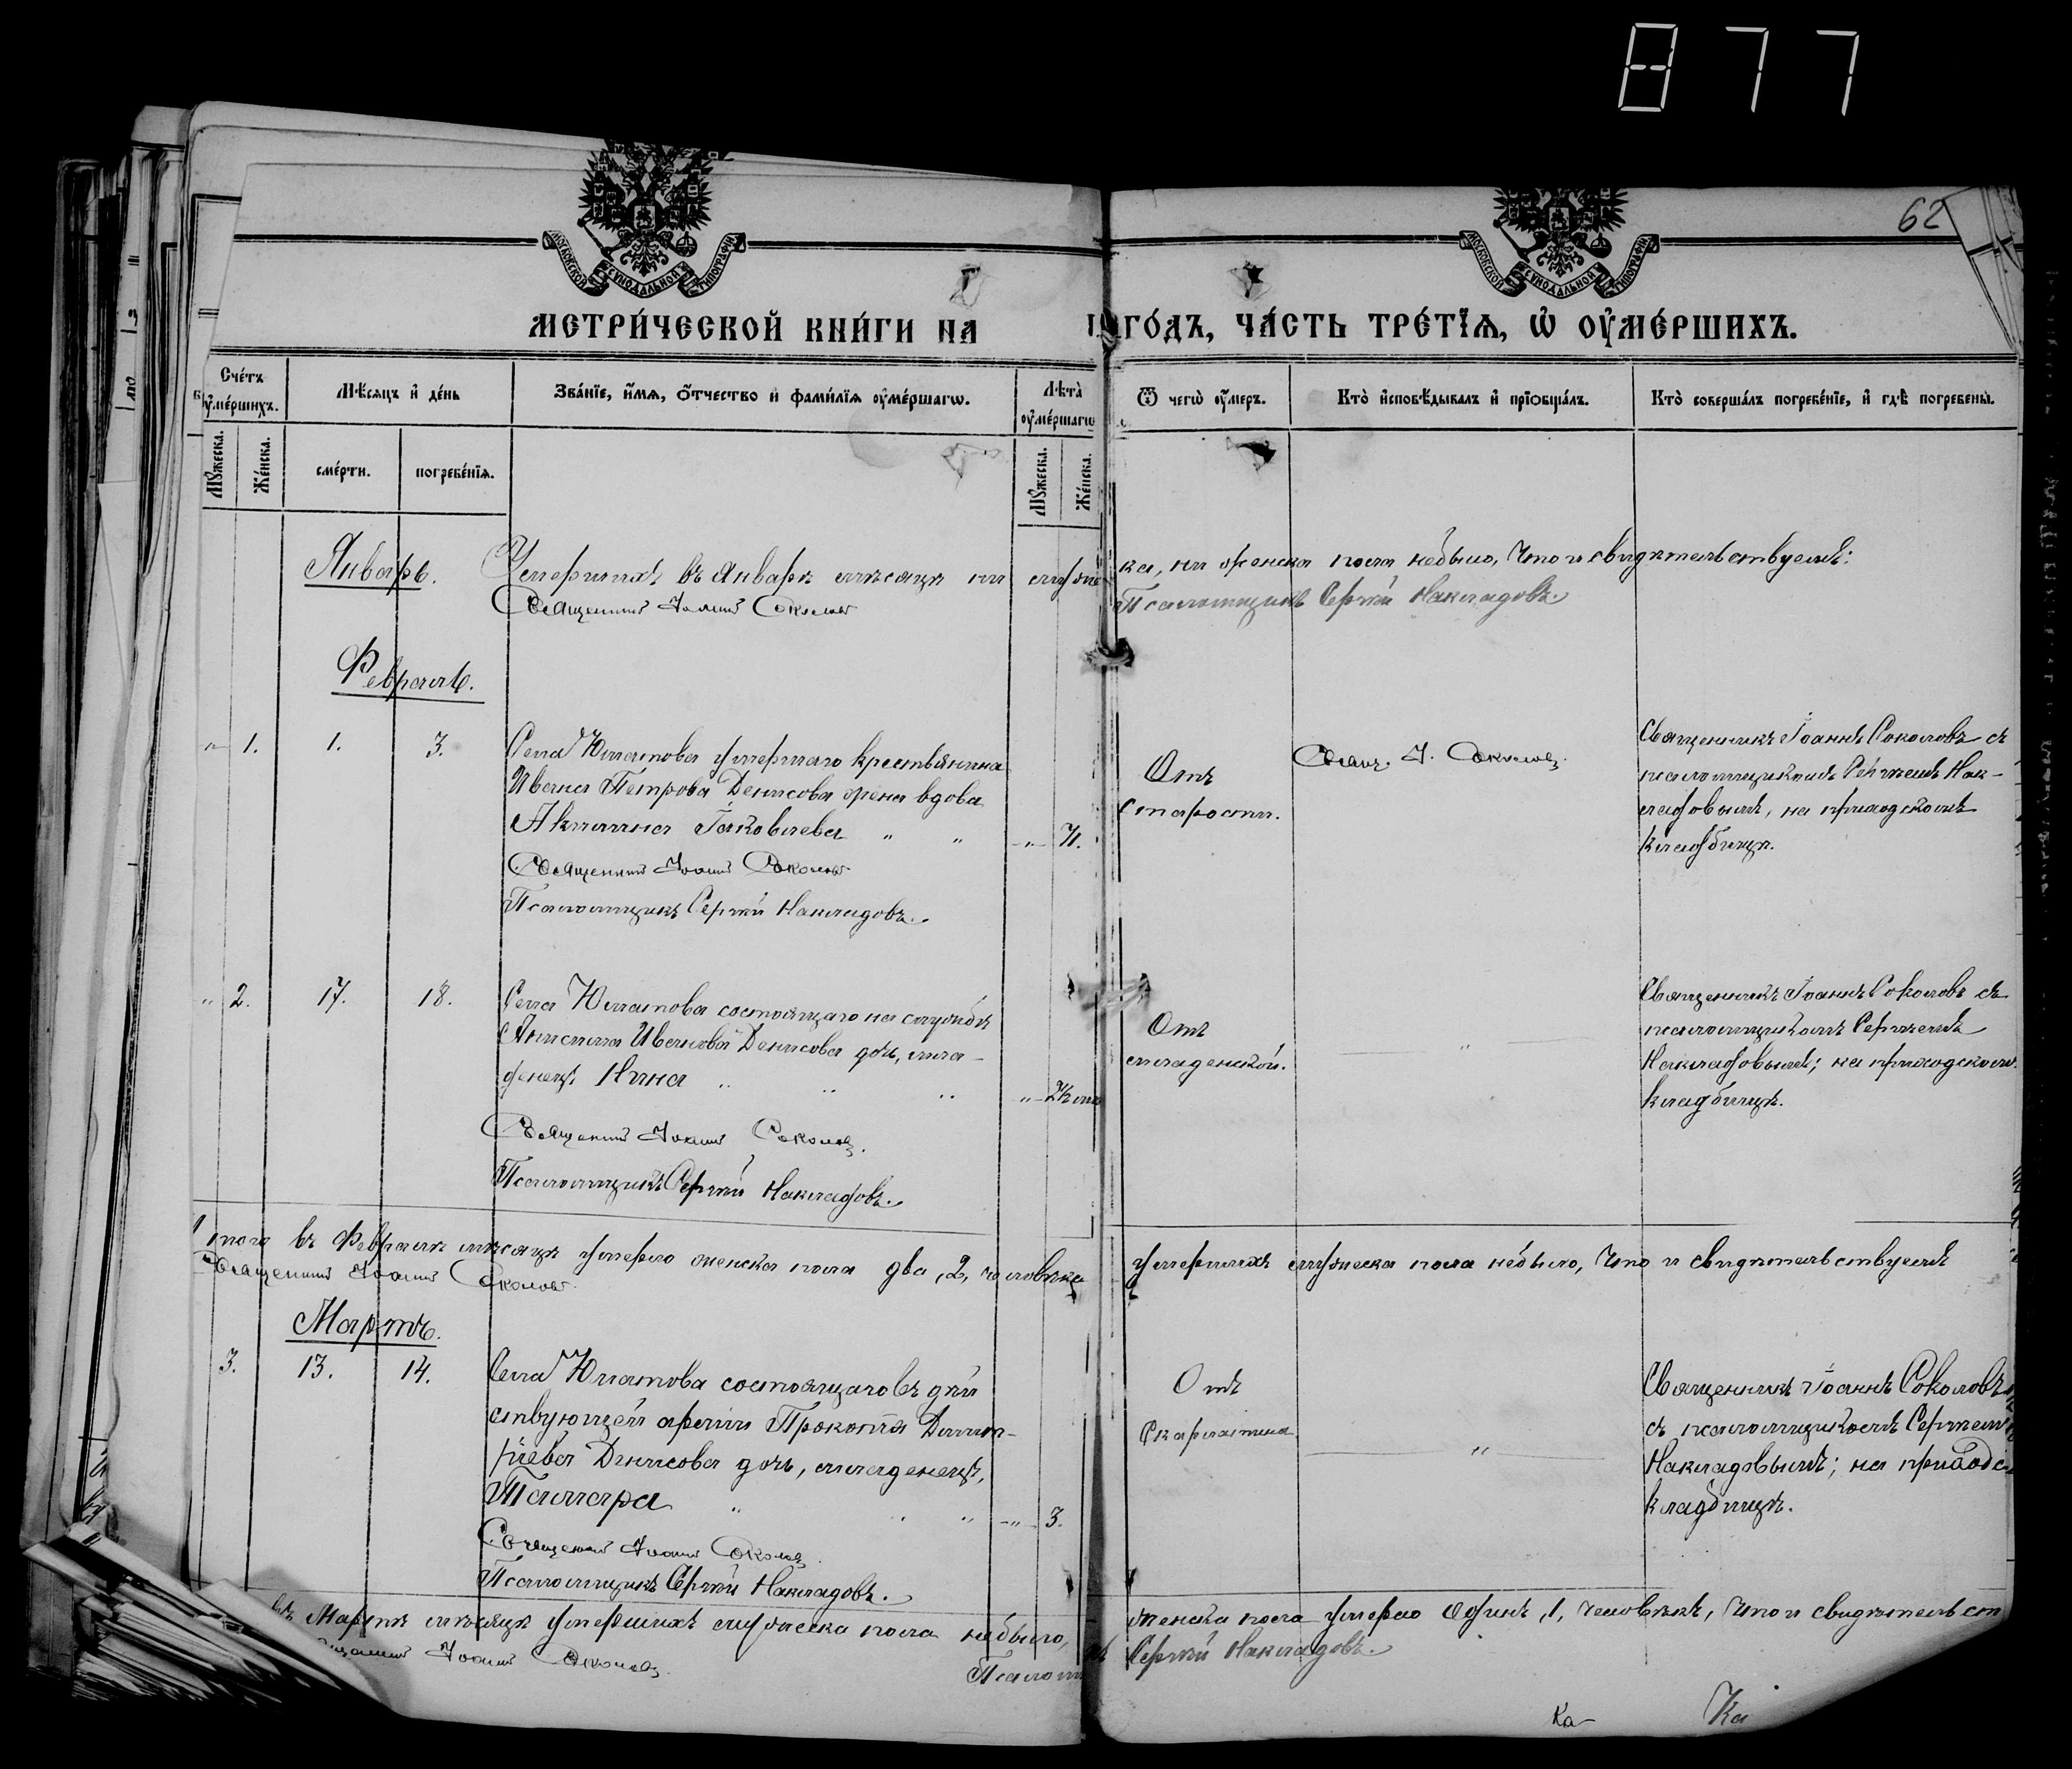 877
62
МОСКОВСКОЙ СѴНОДАЛЬНОЙ ТИПОГРАФІИ
МОСКОВСКОЙ СѴНОДАЛЬНОЙ ТИПОГРАФІИ
МЕТРИ́ЧЕСКОЙ КНИ́ГИ НА ГО́ДЪ, ЧА́СТЬ ТРЕ́ТЇѦ, Ѡ҆ ОУ҆МЕ́РШИХЪ.
Сче́тъ оу҆ме́ршихъ.
Мѣ́сяцъ и҆ де́нь
Зва́нїе, и҆́мѧ, ѻ҆́тчество и҆ фами́лїѧ оу҆ме́ршагѡ.
Лѣ́та оу҆ме́ршагѡ
Ѿ чегѡ̀ оу҆́меръ.
Кто̀ и҆сповѣ́дывалъ и҆ прїѻбща́лъ.
Кто̀ соверша́лъ погребе́нїе, и҆ гдѣ̀ погребены̀.
Мꙋ́жеска.
Же́нска.
сме́рти.
погребе́нїѧ.
Мꙋ́жеска.
Же́нска.
Январь. Умершихъ въ Январѣ мѣсяцѣ ни мужеска, ни женска пола небыло, что и свидѣтельствуемъ:
Священникъ Іоаннъ Соколовъ Псаломщикъ Сергѣй Накладовъ.
Февраль.
" 1. 1. 3. Села Юматова умершаго крестьянина
Ивана Петрова Денисова жена вдова
Акилина Іаковлева " " -"- 71.
Священникъ Іоаннъ Соколовъ
Псаломщикъ Сергѣй Накладовъ.
Отъ
старости.
Свящ. І. Соколовъ.
Священникъ Іоаннъ Соколовъ съ
псаломщикомъ Сергѣемъ Нак-
ладовымъ, на приходскомъ
кладбищѣ.
" 2. 17. 18. Села Юматова состоящаго на службѣ
Анисима Иванова Денисова дочь, мла-
денецъ Нина " " "
Священникъ Іоаннъ Соколовъ.
Псаломщикъ Сергѣй Накладовъ.
Отъ
младенской.
"
Священникъ Іоаннъ Соколовъ съ
псаломщикомъ Сергѣемъ
Накладовымъ; на приходском
кладбищѣ.
Итого въ Февралѣ мѣсяцѣ умерло женска пола два, 2, человѣка умершихъ мужеска пола небыло, что и свидѣтельствуемъ
Священникъ Іоаннъ Соколовъ.
Мартъ.
3. 13. 14. Села Юматова состоящаго въ дѣй
ствующей арміи Прокопія Димит-
ріева Денисова дочь, младенецъ,
Тамара " " " -"- 3.
Священникъ Іоаннъ Соколовъ.
Псаломщикъ Сергѣй Накладовъ.
Отъ
Скарлатина
"
Священникъ Іоаннъ Соколовъ
съ псаломщикомъ Сергѣем
Накладовымъ; на приходс
кладбищѣ.
въ Мартѣ мѣсяцѣ умершихъ мужеска пола небыло, женска пола умерло одинъ, 1, человѣкъ, что и свидѣтельст
Іоаннъ Соколовъ. Псаломщ Сергѣй Накладовъ.
Ка- Ка